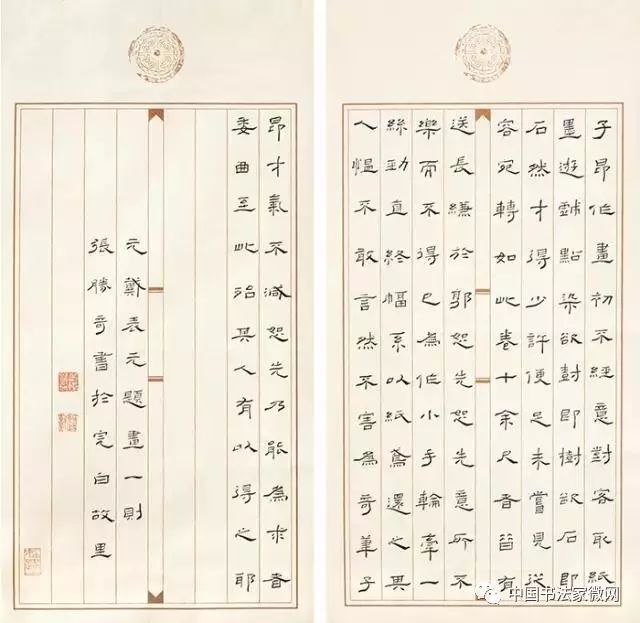 子昂作畫初不經意對客取紙
墨遊戲點染欲尌即樹欲石即
石然才得少許便足未嘗見從
容宛轉如此卷十余尺者皆有
送長縑於郭恕先恕先意所不
樂而不得已為作小手輪牽一
絲勁直終幅系以紙鳶還之其
人慍不敢言然不害為奇筆子
昂才氣不減恕先乃能為求者
委曲至此殆其人有以得之耶
元鄭表元題畫一則
張勝奇書於完白故里
中国书法家微网